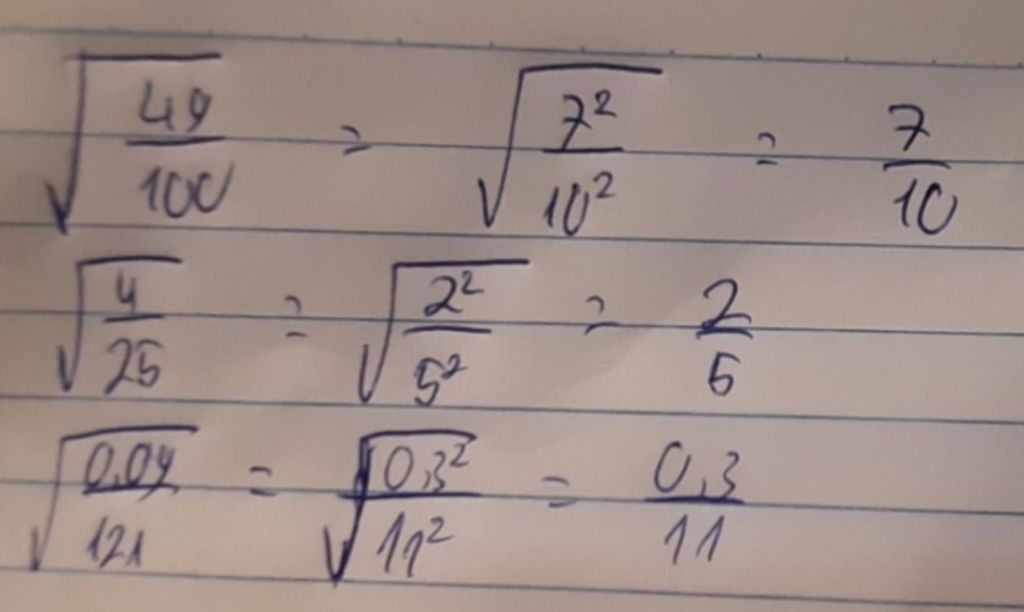 √(49/100) = √(7²/10²) = 7/10
√(4/25) = √(2²/5²) = 2/5
√(0,09/121) = √(0,3²/11²) = 0,3/11